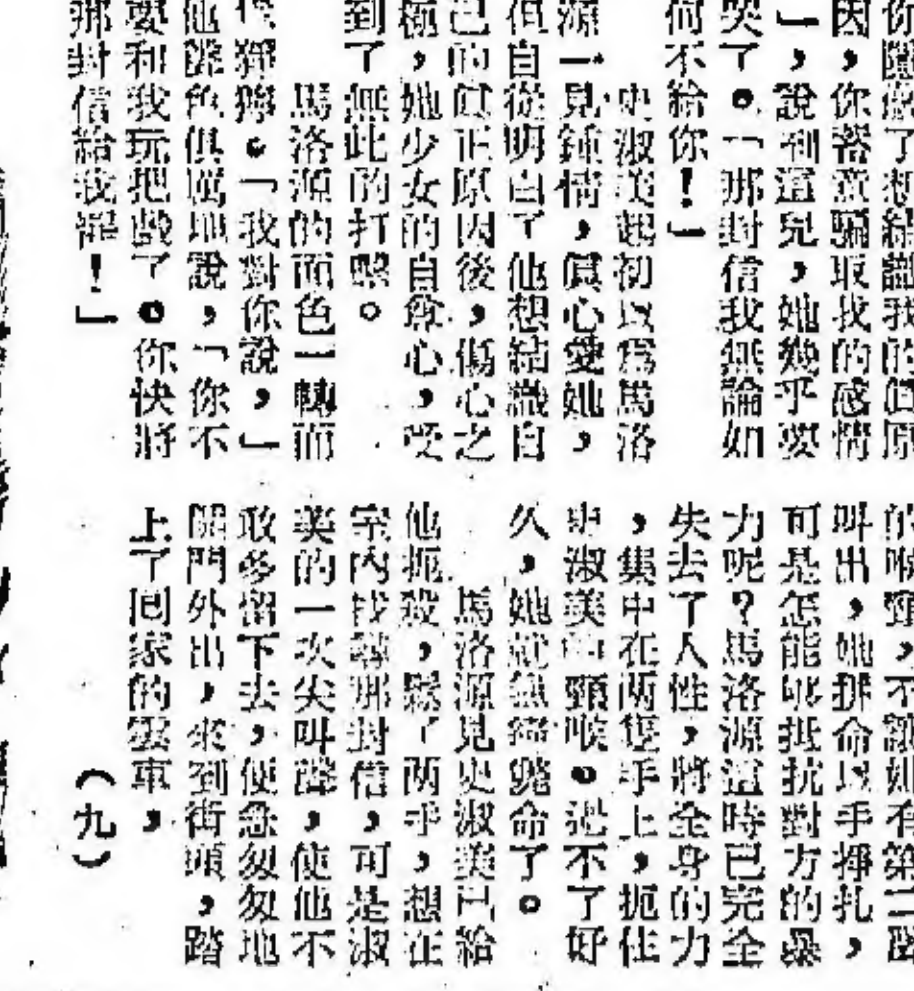 你隱瞞了想結識我的眞原
因，你蓄意騙取我的感情
」，說到這兒，她幾乎要
哭了。「那封信我無論如
何不給你！」
史淑美起初以爲馬洛
源一見鍾情，眞心愛她，
但自從明白了他想結識自
己的眞正原因後，傷心之
極，她少女的自尊心，受
到了無比的打擊。
馬洛源的面色一轉而
獰獰。「我對你說，」
他聲色俱厲地說，「你不
要和我玩把戲了。你快將
那封信給我罷！」
的喉頭，不讓她有第二聲
叫出，她拼命以手掙扎，
可是怎能够抵抗對方的暴
力呢？馬洛源這時已完全
失去了人性，將全身的力
，集中在两隻手上，扼住
史淑美的頸喉。過不了好
久，她就無聲斃命了。
馬洛源見史淑美已給
他扼殺，鬆了两手，想在
室內找尋那封信，可是淑
美的一次尖叫聲，使他不
敢多留下去，便急匆匆地
開門外出，來到街頭，踏
上了回家的電車，
（九）